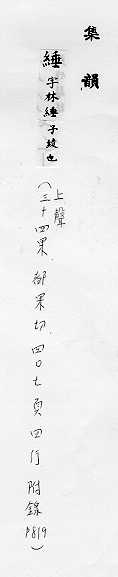 集韻
綞 字林綞子綾也
(上聲
三十四果 都果切 四○七頁四行 附錄P819)